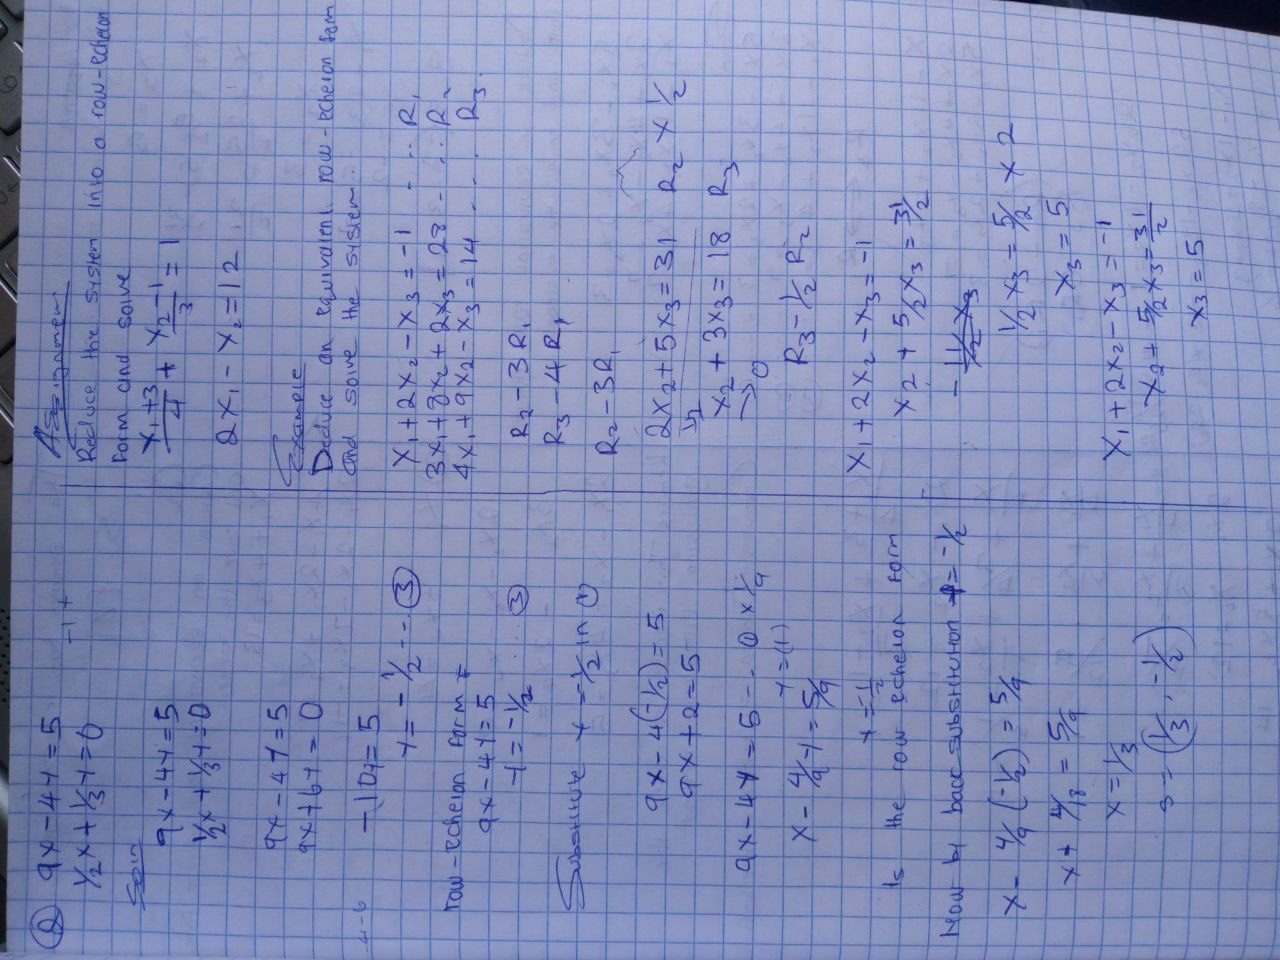 ② 9x - 4y = 5
1/2x + 1/3y = 0
-1 +
Soln
9x - 4y = 5
1/2x + 1/3y = 0
9x - 4y = 5
9x + 6y = 0
-4-6
-10y = 5
y = -1/2 --- ③
row-echelon form =
9x - 4y = 5
y = -1/2 ... ③
Substitute y = -1/2 in ①
9x - 4(-1/2) = 5
9x + 2 = 5
9x - 4y = 5 -- ① x 1/9
y = (1)
x - 4/9 y = 5/9
y = -1/2
Is the row echelon form
Now by back substitution y = -1/2
x - 4/9 (-1/2) = 5/9
x + 4/18 = 5/9
x = 1/3
s = (1/3, -1/2)
Assignment
Reduce the system into a row-echelon
form and solve
x₁+3/4 + x₂-1/3 = 1
2x₁ - x₂ = 12
Example
Deduce an equivalent row-echelon form
and solve the system.
x₁ + 2x₂ - x₃ = -1 - .. R₁
3x₁ + 8x₂ + 2x₃ = 28 - .. R₂
4x₁ + 9x₂ - x₃ = 14 - - . R₃
R₂ - 3R₁
R₃ - 4R₁
R₂ - 3R₁
2x₂ + 5x₃ = 31 R₂ x 1/2
1/2
x₂ + 3x₃ = 18 R₃
→ 0
R₃ - 1/2 R₂
x₁ + 2x₂ - x₃ = -1
x₂ + 5/2x₃ = 31/2
- 11/2 x₃
1/2 x₃ = 5/2 x 2
x₃ = 5
x₁ + 2x₂ - x₃ = -1
x₂ + 5/2x₃ = 31/2
x₃ = 5